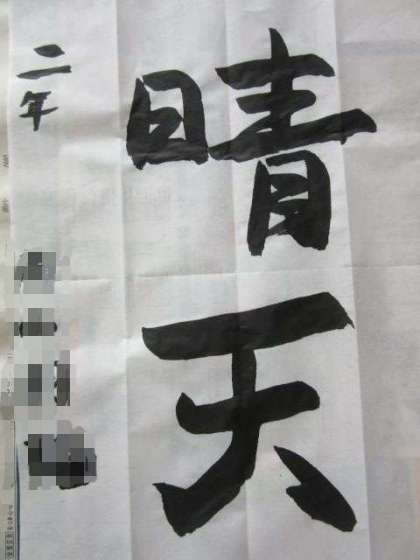 晴天
二年